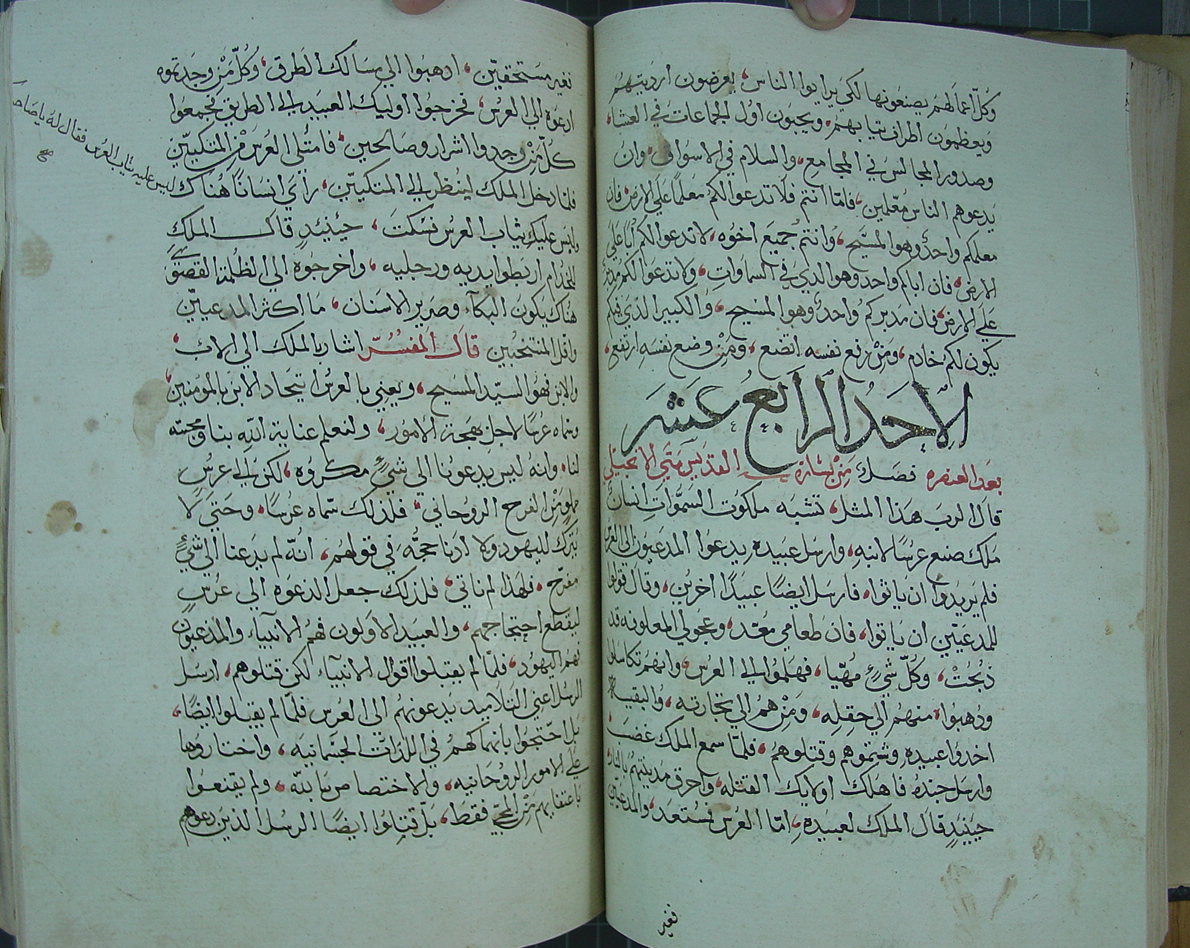 وكل اعمالهم يصنعونها لكي يرايوا الناس، يعرضون ارديتهم
ويعظمون اطراف ثيابهم، ويحبون اول الجماعات في العشا،
وصدور المجالس في المجامع، والسلام في الاسواق، وان
يدعوهم الناس معلمين، فامّا انتم فلا تدعوا لكم معلماً علي الارض فان
معلمكم واحد وهوا المسيح، وانتم جميع اخوه، لا تدعوا لكم اباً علي
الارض، فان اباكم واحد وهو الذي في السماوات، ولا تدعوا لكم مدبر
علي الارض، فان مدبركم واحد، وهوا المسيح، والكبير الذي فيكم
يكون لكم خادم، ومن رفع نفسه اتضع، ومن وضع نفسه ارتفع،
الاحد الرابع عشر
بعد العنصره فصل من بشارة القديس متي الانجيلي
قال الرب هذا المثل، تشبه ملكوت السموات انسان
ملك صنع عرسًا لابنه، وارسل عبيده ليدعوا المدعيون الي العرس
فلم يريدوا ان ياتوا، فارسل ايضًا عبيدًا اخرين، وقال قولوا
للمدعيين ان ياتوا، فان طعامي معّد، وعجولي المعلوفه قد
ذبحت، وكل شيءٍ مهّيا، فهلموا الي العرس، وانهم تكاسلوا
وذهبوا منهم الي حقله، ومن هم الي تجارته، والبقيه
اخدوا عبيده وشتموهم وقتلوهم، فلمّا سمع الملك غضب
وارسل جنده فاهلك اولايك القتله، واحرق مدينتهم بالنار
حينيدٍ قال الملك لعبيده، امّا العرس فمستعد، والمدعيين
فغير
فغير مستحقين، اذهبوا الي مسالك الطرق، وكل من وجدتموه
ادعوه الي العرس، فخرجوا اوليك العبيد الي الطريق فجمعوا
كل من وجدوا اشرار وصالحين، فامتلي العرس من المتكيين
فلمّا دخل الملك لينظر الي المتكيين، راي انسانًا هناك ليس عليه ثياب العرس فقال له يا صاحب
صح
وليس عليك ثياب العرس فسكت، حينئيدٍ قال الملك
للخدام اربطوا يديه ورجليه، واخرجوه الي الظلمة القصوي
هناك يكون البكاء وصرير الاسنان، ما اكثر المدعيين
واقل المنتخبين قال المفسّر اشار بالملك الي الاب،
والابن فهو السيّد المسيح، ويعني بالعرس اتحاد الابن بالمومنين
وسماه عرسًا لاجل بهجة الامور، ولنعلم عناية الله بنا ومحبته
لنا، وانه ليس يدعونا الي شيءٍ مكروه، لكن الي عرسٍ
مملوٍ من الفرح الروحاني، فلذلك سمّاه عرسًا، وحتي لا
يترك لليهود ولا ادنا حجّه في قولهم، انه لم يدعنا الي شيءٍ
مفرح، فلهذا لم ناتي، فلذلك جعل الدعوه الي عرسٍ
ليقطع احتجاجهم، والعبيد الاولون فهم الانبياء، والمدعيون
فهم اليهود، فلمّا لم يقبلوا اقوال الانبياء لكن قتلوهم، ارسل
الرسل اعني التلاميد يدعونهم الي العرس فلمّا لم يقبلوا ايضًا،
بل احتجوا بانهماكهم في اللذات الجسمانيه، واختاروها
علي الامور الروحانيه، والاختصاص بابنه، ولم يقتنعوا
باعتفايهم من المجي فقط، بل قتلوا ايضًا الرسل الذين دعوهم